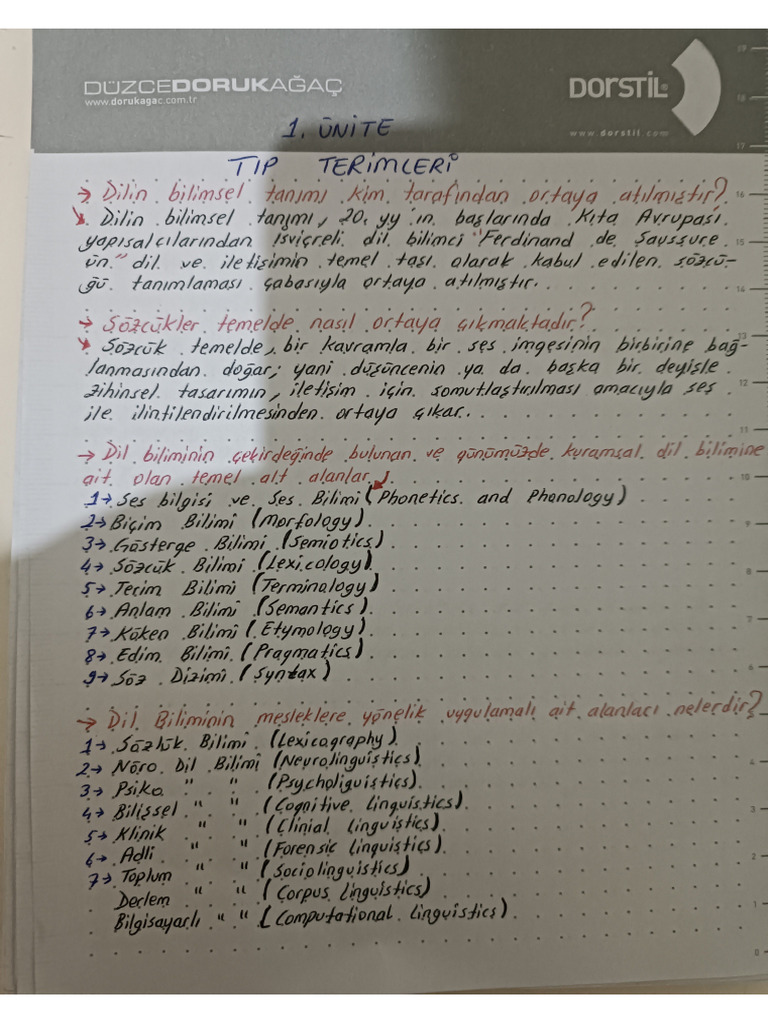 DÜZCEDORUKAĞAÇ
www.dorukagac.com.tr
DORSTİL®
www.dorstil.com
1. ÜNİTE
TIP TERİMLERİ
→ Dilin bilimsel tanımı kim tarafından ortaya atılmıştır?
↘ Dilin bilimsel tanımı, 20. yy'ın başlarında Kıta Avrupası
yapısalcılarından İsviçreli dil bilimci "Ferdinand de Saussure
ün" dil ve iletişimin temel taşı olarak kabul edilen sözcü-
ğü tanımlaması çabasıyla ortaya atılmıştır.
→ Sözcükler temelde nasıl ortaya çıkmaktadır?
↘ Sözcük temelde, bir kavramla bir ses imgesinin birbirine bağ-
lanmasından doğar; yani düşüncenin ya da başka bir deyişle
zihinsel tasarımın, iletişim için somutlaştırılması amacıyla ses
ile ilintilendirilmesinden ortaya çıkar.
→ Dil biliminin çekirdeğinde bulunan ve günümüzde kuramsal dil bilimine
ait olan temel alt alanlar
1→ Ses bilgisi ve Ses Bilimi (Phonetics and Phonology)
2→ Biçim Bilimi (Morfology)
3→ Gösterge Bilimi (Semiotics)
4→ Sözcük Bilimi (Lexicology)
5→ Tecim Bilimi (Terminology)
6→ Anlam Bilimi (Semantics)
7→ Köken Bilimi (Etymology)
8→ Edim Bilimi (Pragmatics)
9→ Söz Dizimi (Syntax)
→ Dil Biliminin mesleklere yönelik uygulamalı alt alanları nelerdir?
1→ Sözlük Bilimi (Lexicography)
2→ Nöro Dil Bilimi (Neurolinguistics)
3→ Psiko " " (Psycholiguistics)
4→ Bilişsel " " (Cognitive Linguistics)
5→ Klinik " " (Clinial Linguistics)
6→ Adli " " (Forensic Linguistics)
7→ Toplum " " (Sociolinguistics)
Derlem " " (Corpus Linguistics)
Bilgisayarlı " " (Computational Linguistics)
19
18
17
16
15
14
13
12
11
10
9
8
7
6
4
3
2
1
0